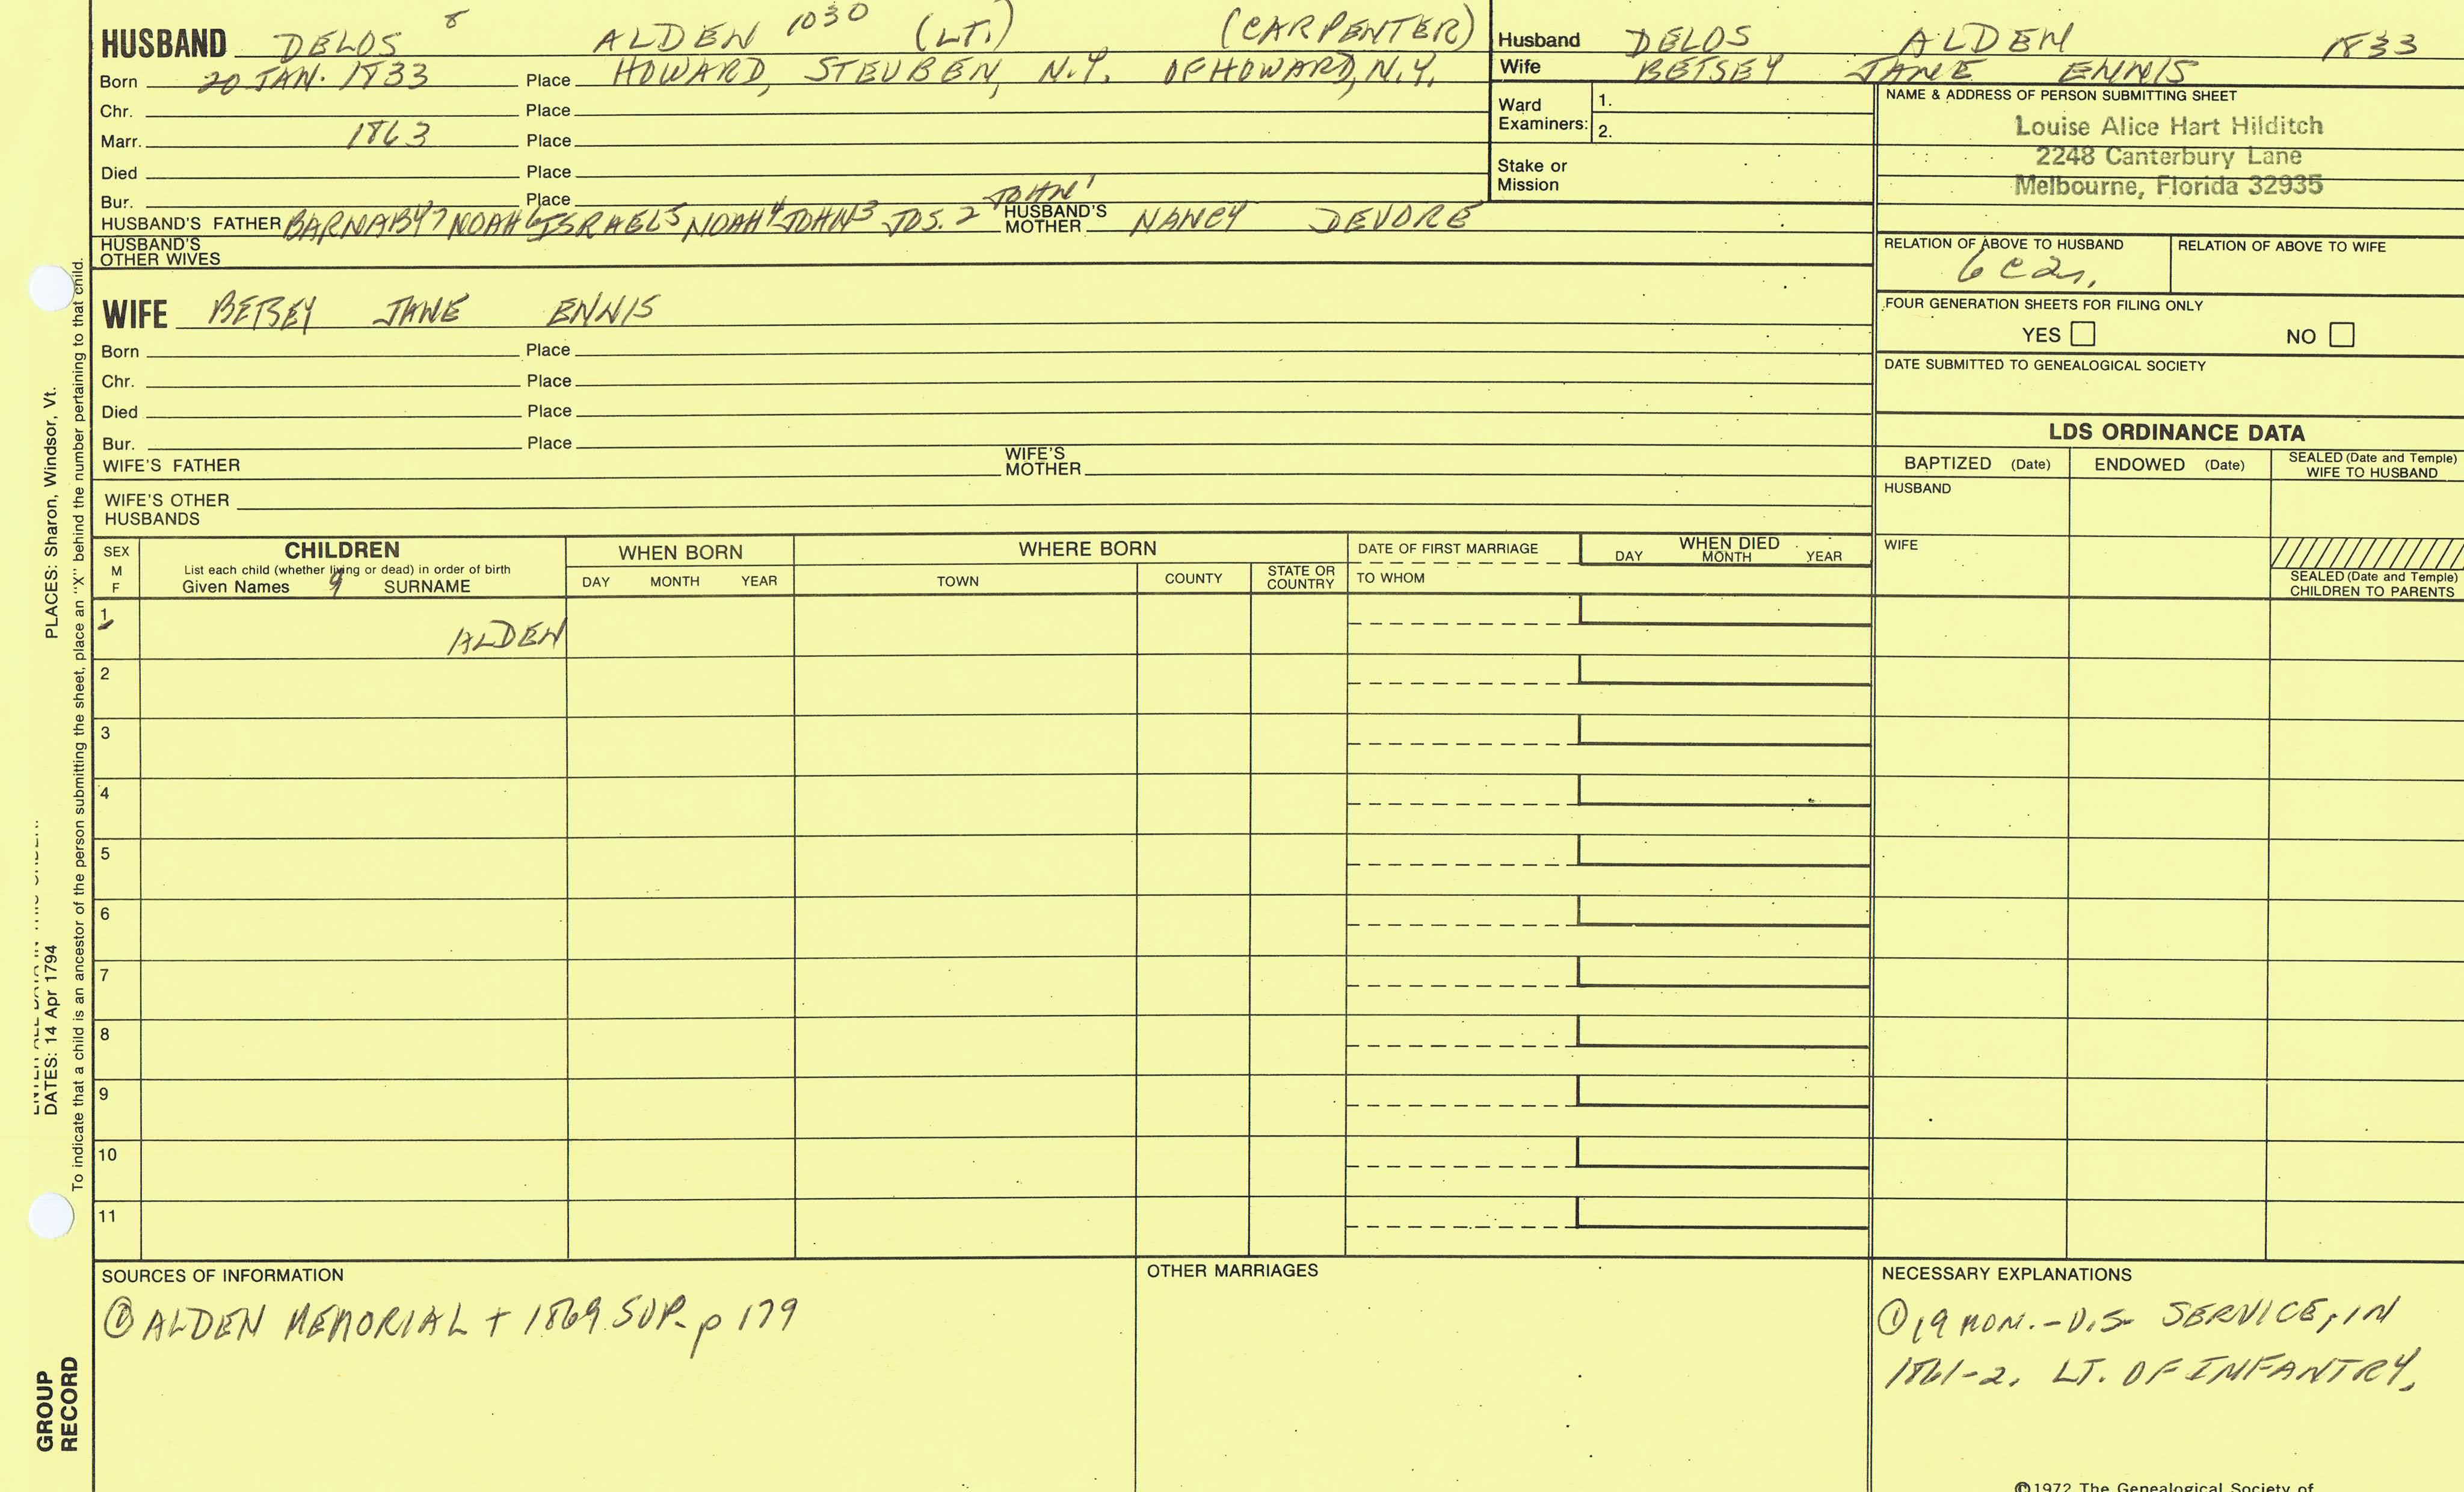 HUSBAND DELOS 8 ALDEN 1030 (LT.) (CARPENTER)
Born 20 JAN. 1833 Place HOWARD, STEUBEN, N.Y. OF HOWARD, N.Y.
Chr. Place
Marr. 1863 Place
Died Place
Bur. Place
HUSBAND'S FATHER BARNABY7 NOAH6 ISRAEL5 NOAH4 JOHN3 JOS.2 JOHN1 HUSBAND'S MOTHER NANCY DEVORE
HUSBAND'S OTHER WIVES
WIFE BETSEY JANE ENNIS
Born Place
Chr. Place
Died Place
Bur. Place
WIFE'S FATHER WIFE'S MOTHER
WIFE'S OTHER HUSBANDS
Husband DELOS ALDEN 1833
Wife BETSEY JANE ENNIS
Ward Examiners: 1.
2.
Stake or Mission
NAME & ADDRESS OF PERSON SUBMITTING SHEET
Louise Alice Hart Hilditch
2248 Canterbury Lane
Melbourne, Florida 32935
RELATION OF ABOVE TO HUSBAND RELATION OF ABOVE TO WIFE
6 c 2r.
FOUR GENERATION SHEETS FOR FILING ONLY
YES NO
DATE SUBMITTED TO GENEALOGICAL SOCIETY
LDS ORDINANCE DATA
BAPTIZED (Date) ENDOWED (Date) SEALED (Date and Temple) WIFE TO HUSBAND
HUSBAND
WIFE
SEALED (Date and Temple) CHILDREN TO PARENTS
SEX M F CHILDREN WHEN BORN WHERE BORN DATE OF FIRST MARRIAGE WHEN DIED
List each child (whether living or dead) in order of birth DAY MONTH YEAR
Given Names 9 SURNAME DAY MONTH YEAR TOWN COUNTY STATE OR COUNTRY TO WHOM
1 ALDEN
2
3
4
5
6
7
8
9
10
11
SOURCES OF INFORMATION
① ALDEN MEMORIAL + 1869 SUP. p 179
OTHER MARRIAGES
NECESSARY EXPLANATIONS
① 19 MON. - U.S. SERVICE, IN
1861-2. LT. OF INFANTRY.
©1972 The Genealogical Society of
PLACES: Sharon, Windsor, Vt.
DATES: 14 Apr 1794
To indicate that a child is an ancestor of the person submitting the sheet, place an "X" behind the number pertaining to that child.
GROUP
RECORD